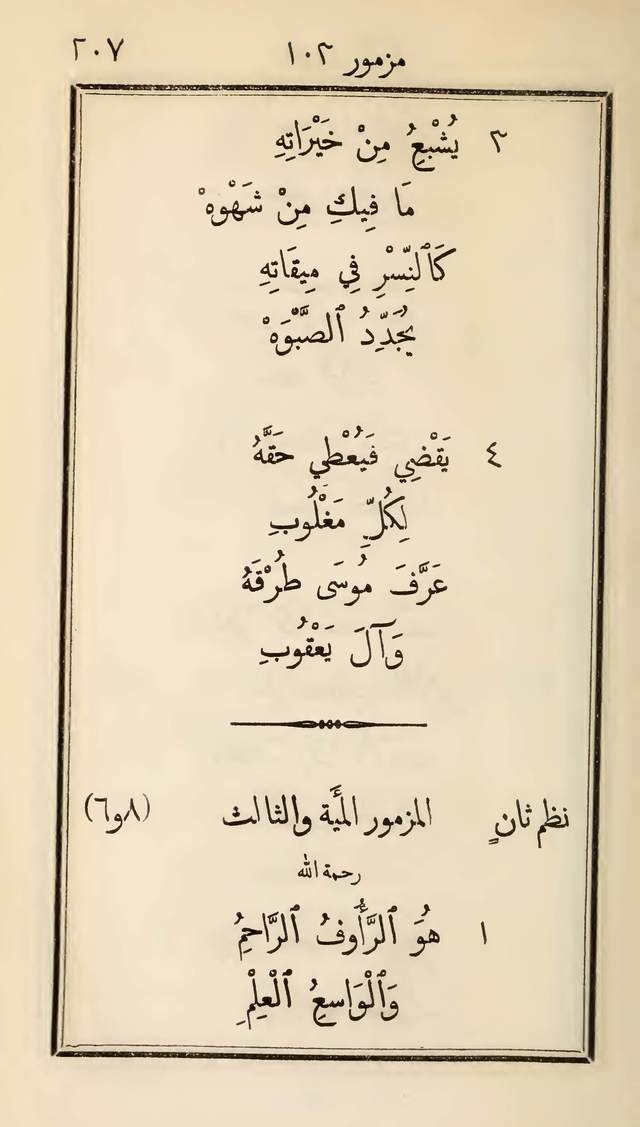 مزمور ١٠٣ ٢٠٧
٣ يُشْبِعُ مِنْ خَيْرَاتِهِ
مَا فِيكِ مِنْ شَهْوَهْ
كَٱلنِّسْرِ فِي مِيقَاتِهِ
يُجَدِّدُ ٱلصَّبْوَهْ
٤ يَقْضِي فَيُعْطِي حَقَّهُ
لِكُلِّ مَغْلُوبِ
عَرَّفَ مُوسَى طُرْقَهُ
وَآلَ يَعْقُوبِ
نظم ثانٍ المزمور المئَة والثالث (٨ و٦)
رحمة الله
١ هُوَ ٱلرَّأُوفُ ٱلرَّاحِمُ
وَٱلْوَاسِعُ ٱلْعِلْمِ